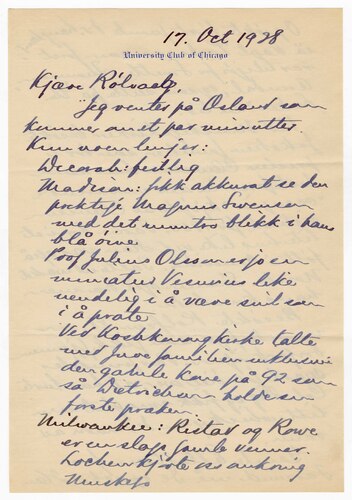 17. Oct 1928
University Club of Chicago
Kjære Rölvaag,
Jeg venter på Osland som
kommer om et par minutter.
Kun noen linjer:
Decorah: festlig
Madison: fikk akkurat se den
prektige Magnus Swenson
med det muntre blikk i hans
blå öine
Prof Julius Olson er jo en
miniatur Vesuvius like
uendelig i å være snil som
i å prate
Ved Koshkonong kirke talte
med familien
den gamle kone på 92 som
så Dietrichson holde sin
förste preken.
Milwaukee: Ristad og Rowe
er en slags gamle venner.
Lochen kjörte oss omkring
Muskego